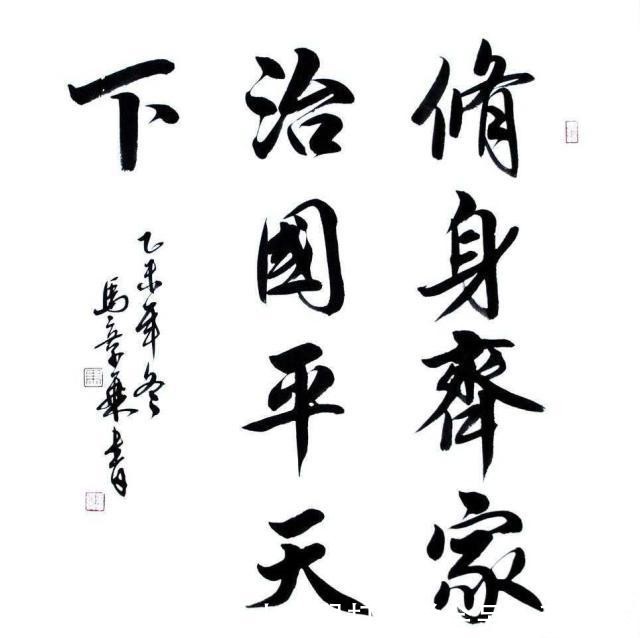 脩身齊家
治國平天
下
乙未年冬
馬章乘書